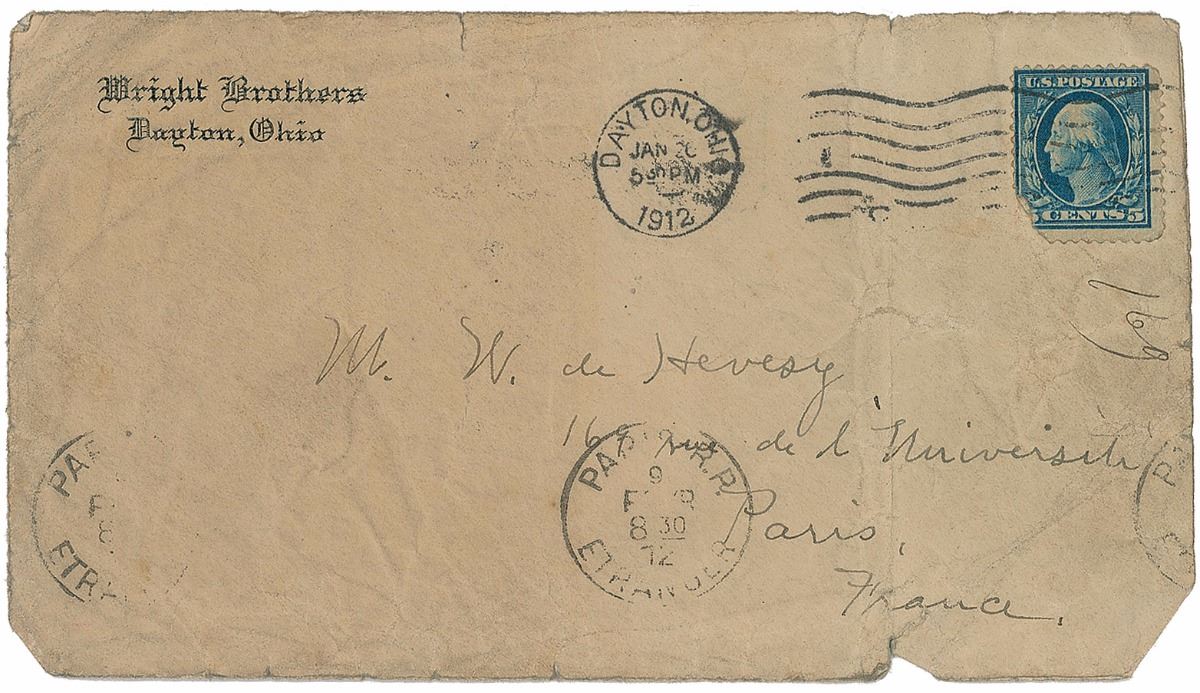 Wright Brothers
Dayton, Ohio
DAYTON, OHIO
JAN 26
5 30 PM
1912
U.S. POSTAGE
5 CENTS 5
M. W. de Hevesy
169 rue de l'Université
Paris,
France.
169
PARIS R.P.
9
FEVR
8 30
12
ETRANGER
PAR
8
ETRA
P